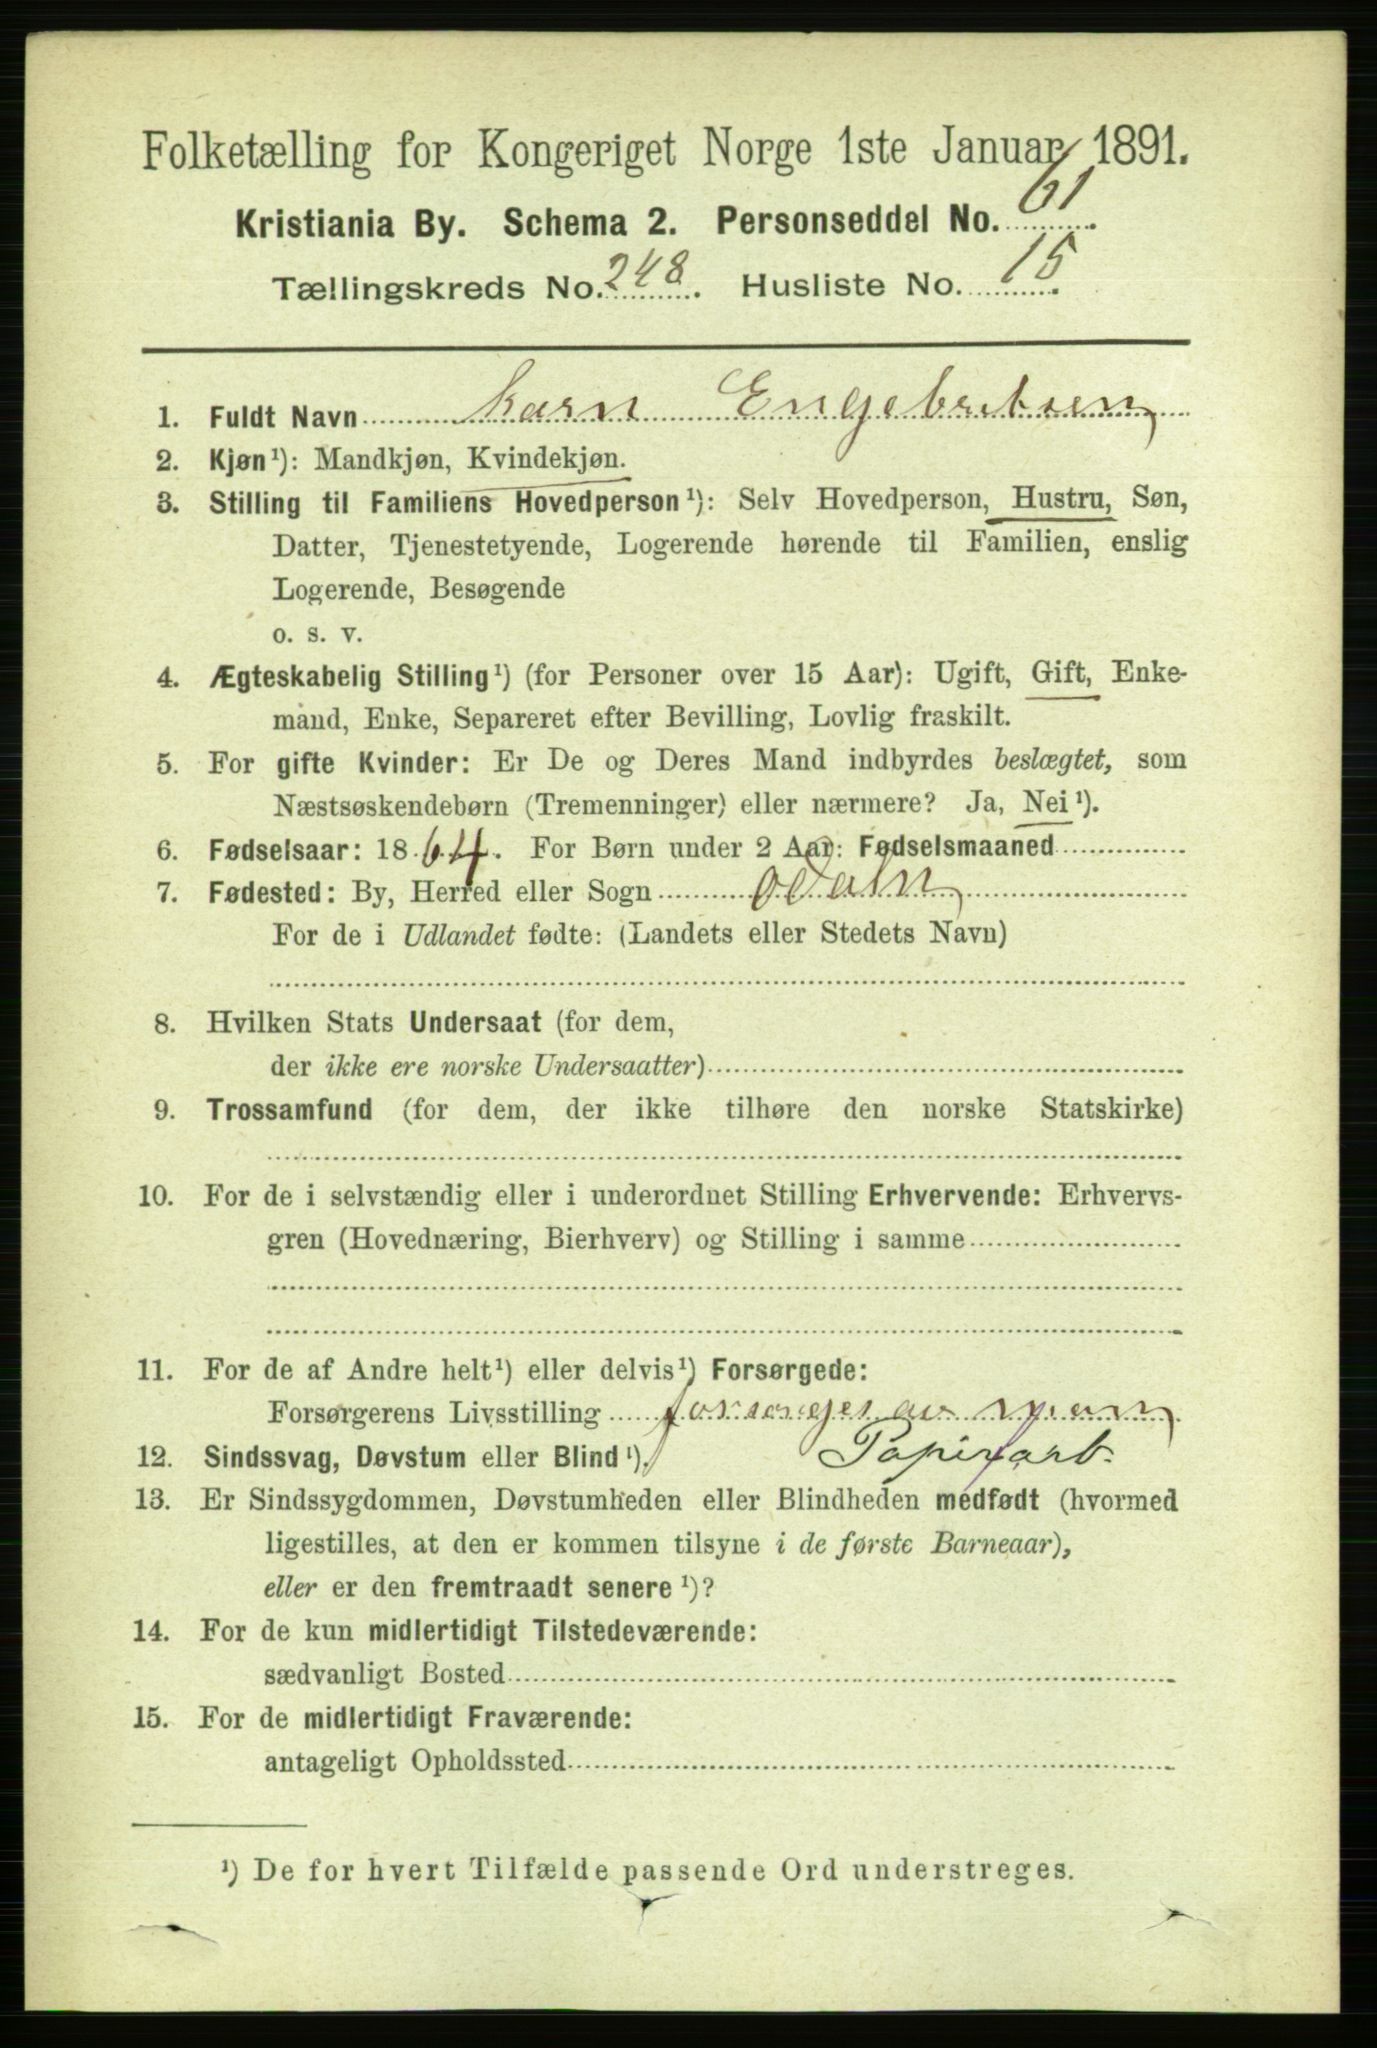 Folketælling for Kongeriget Norge 1ste Januar 1891.
Kristiania By. Schema 2. Personseddel No. 61.
Tællingskreds No. 248. Husliste No. 15.
1. Fuldt Navn Karn Engebretsen
2. Kjøn¹): Mandkjøn, Kvindekjøn.
3. Stilling til Familiens Hovedperson¹): Selv Hovedperson, Hustru, Søn,
Datter, Tjenestetyende, Logerende hørende til Familien, enslig
Logerende, Besøgende
o. s. v.
4. Ægteskabelig Stilling¹) (for Personer over 15 Aar): Ugift, Gift, Enke-
mand, Enke, Separeret efter Bevilling, Lovlig fraskilt.
5. For gifte Kvinder: Er De og Deres Mand indbyrdes beslægtet, som
Næstsøskendebørn (Tremenninger) eller nærmere? Ja, Nei¹).
6. Fødselsaar: 1864. For Børn under 2 Aar: Fødselsmaaned
7. Fødested: By, Herred eller Sogn Odaln
For de i Udlandet fødte: (Landets eller Stedets Navn)
8. Hvilken Stats Undersaat (for dem,
der ikke ere norske Undersaatter)
9. Trossamfund (for dem, der ikke tilhøre den norske Statskirke)
10. For de i selvstændig eller i underordnet Stilling Erhvervende: Erhvervs-
gren (Hovednæring, Bierhverv) og Stilling i samme
11. For de af Andre helt¹) eller delvis¹) Forsørgede:
Forsørgerens Livsstilling forsørges av man
12. Sindssvag, Døvstum eller Blind¹). Papirarb.
13. Er Sindssygdommen, Døvstumheden eller Blindheden medfødt (hvormed
ligestilles, at den er kommen tilsyne i de første Barneaar),
eller er den fremtraadt senere¹)?
14. For de kun midlertidigt Tilstedeværende:
sædvanligt Bosted
15. For de midlertidigt Fraværende:
antageligt Opholdssted
¹) De for hvert Tilfælde passende Ord understreges.